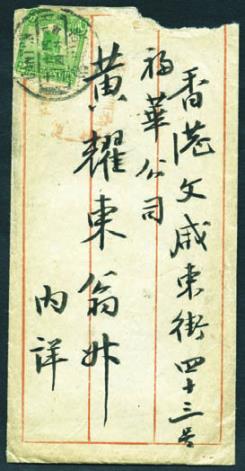 香港文咸東街四十三号
福華公司
黃耀東翁升
內詳